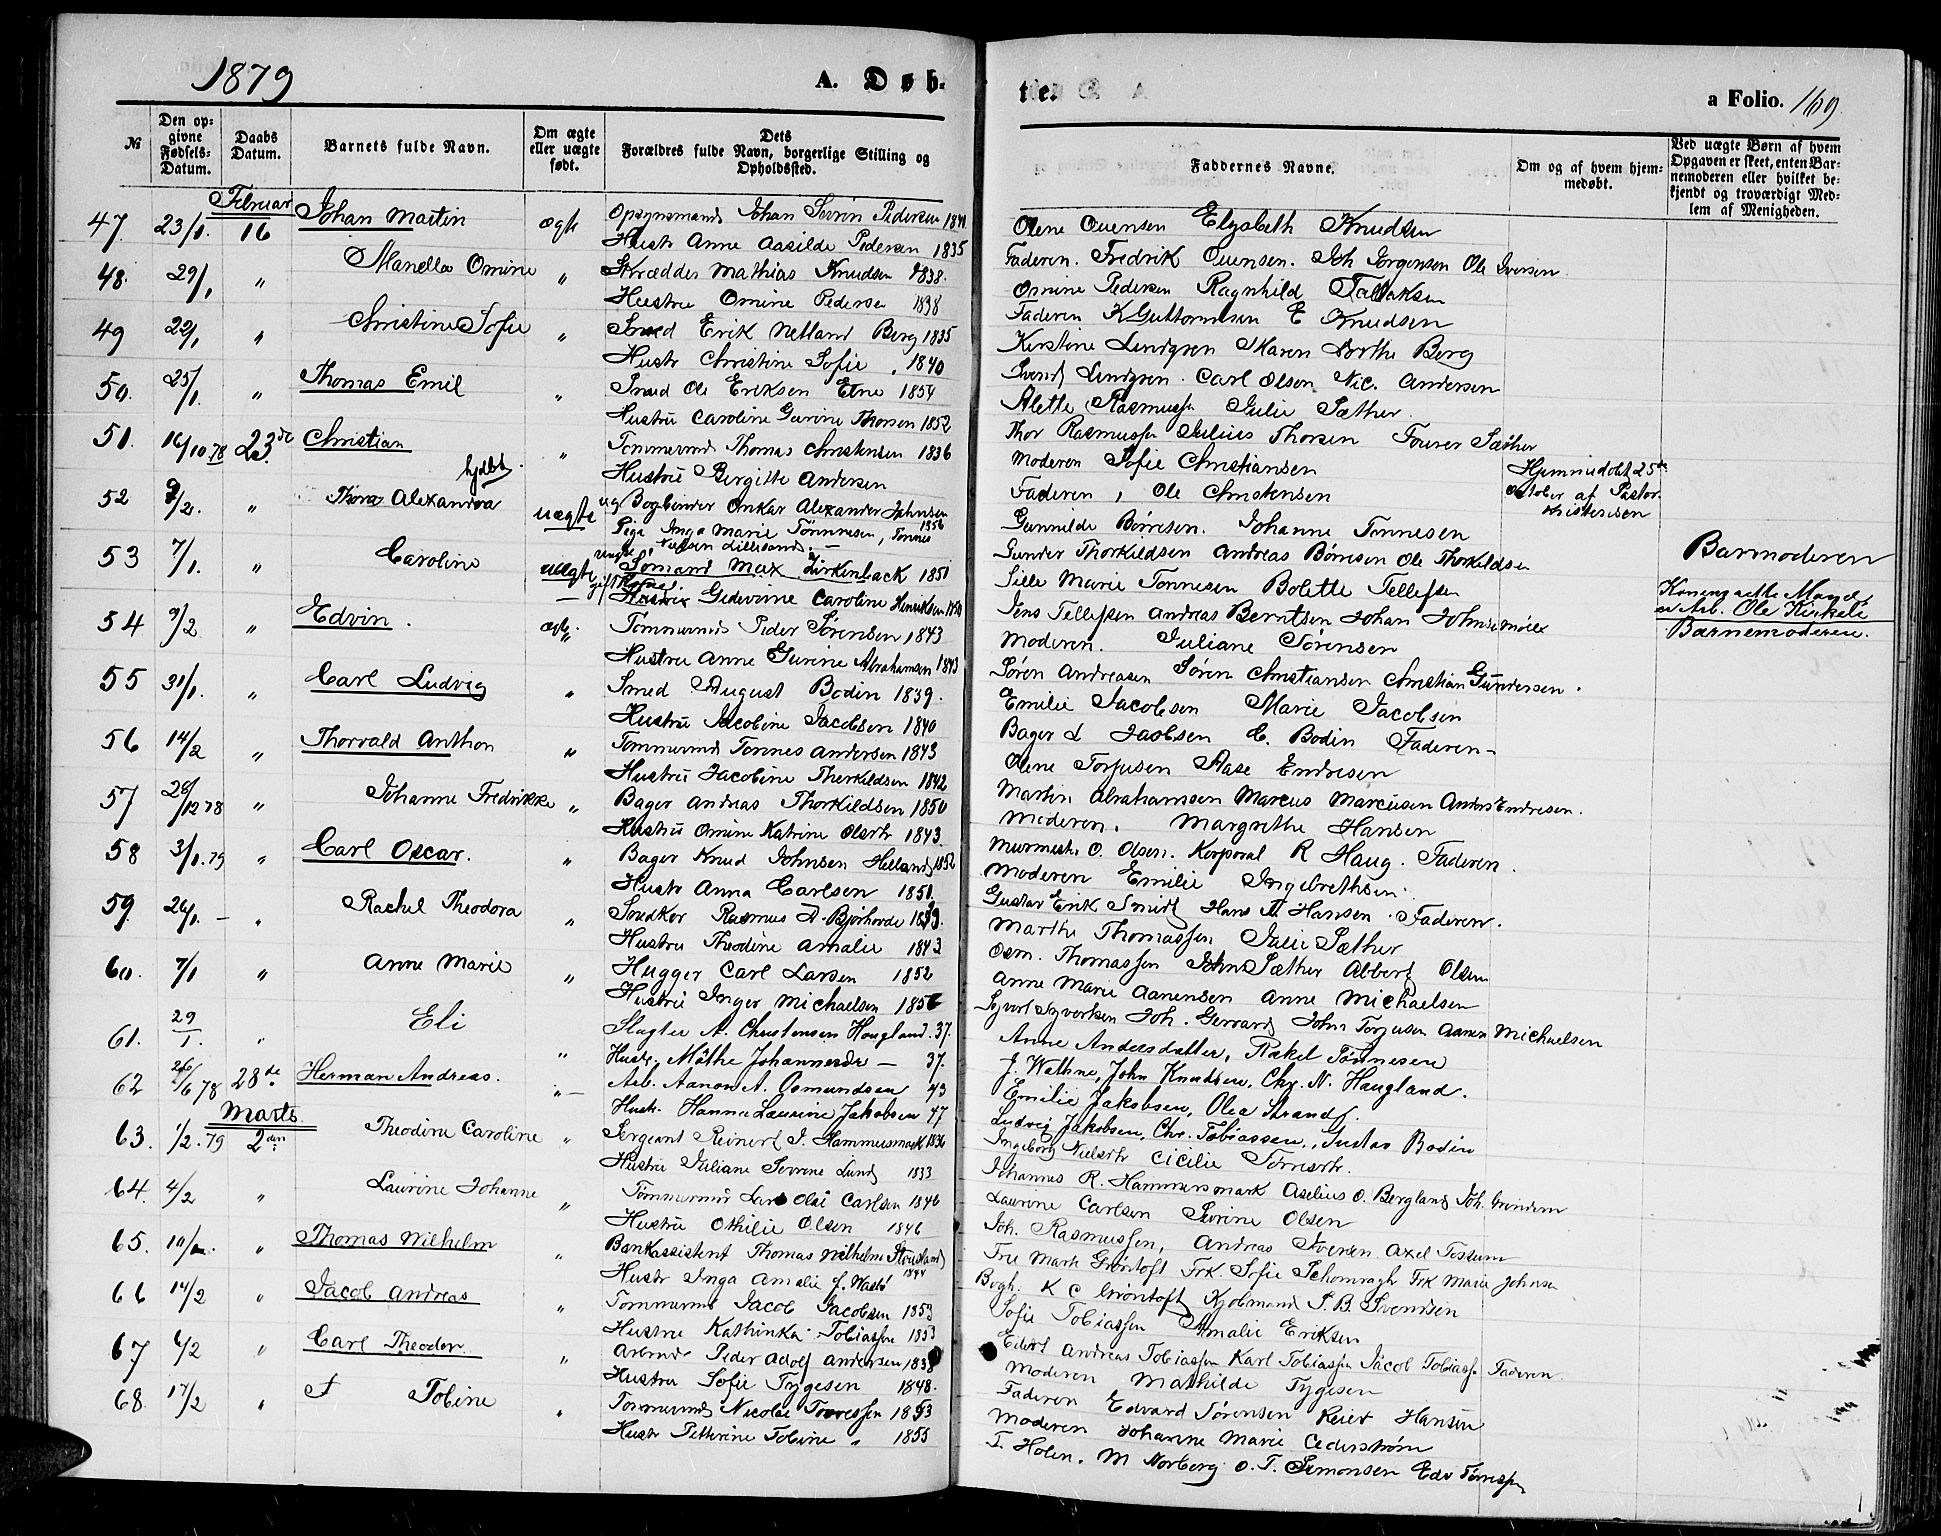 1879 A. Døb-
te. a Folio. 169
№ Den opgivne Fødsels-Datum. Daabs Datum. Barnets fulde Navn. Om ægte eller uægte født. Dets Forældres fulde Navn, borgerlige Stilling og Opholdssted.
Faddernes Navne. Om og af hvem hjemmedøbt. Ved uægte Børn af hvem Opgaven er skeet, enten Barnemoderen eller hvilket bekjendt og troværdigt Medlem af Menigheden.
Februar
47. 23/1. 16 Johan Martin ægte Opsynsmand Johan Severin Pedersen
Hustr Anne Aasilde Pedersen 1835
48. 29/1 " Manella Omine " Skrædder Mathias Knudsen 1838.
Hustru Omine Pedersen 1838
49 22/1 " Christine Sofie " Smed Erik Netland Berg 1835
Hustr Christine Sofie " 1840
50. 25/1. " Thomas Emil " Smed Ole Eriksen Etne 1854
Hustru Caroline Gurine Thorsen 1852
51. 16/10 78 23de Christian " Tømmermd Thomas Christensen 1836
hjdbt. Hustru Birgitte Andersen
52 9/2. " Thora Alexandra uægte ug Bogbinder Onkar Alexander Johnsen
Pige Inga Marie Tønnesen, Tønnes 1856
Nielsen Lillesand. —
53 7/1. " Caroline uægte ungk. Sømand Max Zirkenback 1851
gift Kone. Hustru Gedevine Caroline Henriksen
54 9/2 " Edvin. ægte Tømmermd Peder Sørensen 1843
Hustru Anne Gurine Abrahamsen 1843
55 31/1. " Carl Ludvig " Smed August Bodin 1839.
Hustru Jacobine Jacobsen 1840
56 14/2 " Thorvald Anthon " Tømmermd Tønnes Andersen 1843
Hustru Jacobine Therkildsen 1842
57 28/12 78 " Johanne Fredrikke " Bager Andreas Thorkildsen 1850
Hustru Omine Katrine Olsdtr 1843.
58 3/1. 79 " Carl Oscar. " Bager Knud Johnsen Helland 1852
Hustr Anna Carlsen 1851.
59. 26/1. — " Rachel Theodora " Snedker Rasmus A. Bjorhorde
Hustru Theodine Amalie 1843
60. 7/1 " Anne Marie " Hugger Carl Larsen 1852
Hustru Inger Michaelsen 1856
61. 29/1. " Eli " Slagter A. Christensen Haugland. 37.
Hustr. Mâthe Johannesdr — 37.
62 26/6 78 28de Herman Andreas. " Arb. Aanon A. Osmundsen 43
Hustr. Hanne Laurine Jakobsen 47
Marts
63. 1/2. 79 2den Theodine Caroline " Sergeant Reinert J. Hammersmark 1836
Hustru Juliane Severine Lund 1833
64. 4/2 " Laurine Johanne " Tømmermd Lars Olai Carlsen 1846
Hustru Othilie Olsen 1846
65. 10/2. " Thomas Wilhelm " Bankassistent Thomas Wilhelm
Hustr Inga Amalie f. 1844
66 14/2 " Jacob Andreas " Tømmermd Jacob Jacobsen 1853
Hustru Kathinka Tobiassen 1853
67 6/2 " Carl Theodor. " Arbmd Peder Adolf Andersen 1838
Hustru Sofie Tygesen 1848.
68. 17/2 " Tobine " Tømmermd Nicolai 1853
Hustr Petterine Tobine " 1855
Olene Evensen Elysabeth Knudsen
Faderen. Fredrik Evensen. Joh Jørgensen Ole Iversen
Omine Pedersen Ragnhild Tallaksen
Faderen K Guttormsen E Knudsen
Kirstine Lindgren Maren Dorthe Berg
Svend Lindgren. Carl Olsen. Nic. Andersen
Alette Rasmussen Julie Sæther.
Thor Rasmussen Julius Thorsen Sæther
Moderen Sofie Christiansen Hjemmedøbt 25de
Faderen, Ole Christensen october af Pastor
Christensen
Gunnilde Børresen. Johanne Tønnesen
Gunder Thorkildsen Andreas Børresen Ole Thorkildsen Barnmoderen
Sille Marie Tønnesen Bolette Tellefsen
Jens Tellefsen Andreas Berntsen Johan Konens ægte Mand
er Arb. Ole Kirkelie
Moderen. Juliane Sørensen Barnemoderen.
Søren Andreasen Søren Christiansen Christian Gundersen.
Emilie Jacobsen Marie Jacobsen
Bager L Jacobsen C. Bodin Faderen—
Olene Torjusen Aase Endresen
Martin Abrahamsen Marcus Marcusen Anders Endresen.
Moderen. Margrethe Hansen
Murmestr. O. Olsen. Korporal R Haug. Faderen.
Moderen Emilie Ingebrethsen.
Gustav Erik Smidt Hans A Hansen. Faderen.
Marthe Thomassen Julie Sæther
Osm. Thomassen John Sæther Albert Olsen
Anne Marie Aanensen Anne Michaelsen
Syvert Syvertsen Joh. Gerrard John Torjusen Aanen Michaelsen
Anne Andersdatter, Rakel Tønnesen
J. Wathne, John Knudsen, Chr. N. Haugland.
Emilie Jakobsen, Olea Strand.
Ludvig Jakobsen, Chr. Tobiassen, Gustav Bodin
Ingeborg Nielsdtr Cicilie
Johannes R. Hammersmark Aselius O. Bergland Joh.
Laurine Carlsen Severine Olsen
Joh. Rasmussen, Andreas Iversen Axel Fossum
Frue Marie Grøntoft Frk. Sofie Schonragh Frk Marie Johnsen
Bogh. K C Grøntoft, Kjøbmand S. B. Svendsen
Sofie Tobiassen Amalie Eriksen
Edvart Andreas Tobiassen Karl Tobiassen Jacob Tobiass. Faderen
Moderen Mathilde Tygesen
Faderen Edvard Sørensen Reier Hansen
Moderen Johanne Marie Cederstrøm
T. Holen. M Norberg O. T. Simonsen Edv Tønnesen